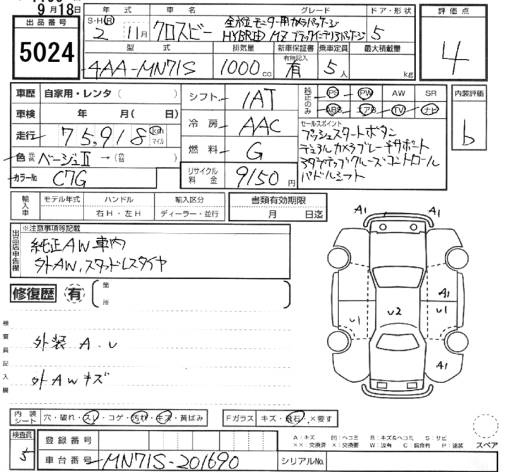 9月18日
出品番号 5024
S・H・R 年式 車名 グレード ドア・形状
2 11月 クロスビー 全方位モニター用カメラパッケージ
HYBRID MZ 5
型式 排気量 新車保証書 乗車定員 最大積載量
4AA-MN71S 1000cc 有 5人 kg
評価点
4
車歴 自家用・レンタ ( )
シフト 1AT
純正のみ PS PW AW SR
AB TV ナビ
内装評価
b
車検 年 月( 日)
走行 75,918 km マイル
冷房 AAC
セールスポイント
プッシュスタートボタン
デュアルカメラブレーキサポート
パドルシフト
色 ベージュⅡ
燃料 G
カラーNo C7G
リサイクル料金 9150円
輸入車 モデル年式 ハンドル 輸入区分 書類有効期限
右H・左H ディーラー・並行 月 日迄
出品店申告欄 ※注意事項等記載
純正AW車内
外AW,スタッドレスタイヤ
修復歴 有 箇所
検査員記入欄
外装 A.U
外AWキズ
A1
A1
U1
U2
U1
A1
内装シート 穴・破れ・スレ・コゲ・汚れ・キズ・黄ばみ
Fガラス キズ・飛石・×要す
スペア
検査員 5
登録番号
車台番号 MN71S-201690
シリアルNo.